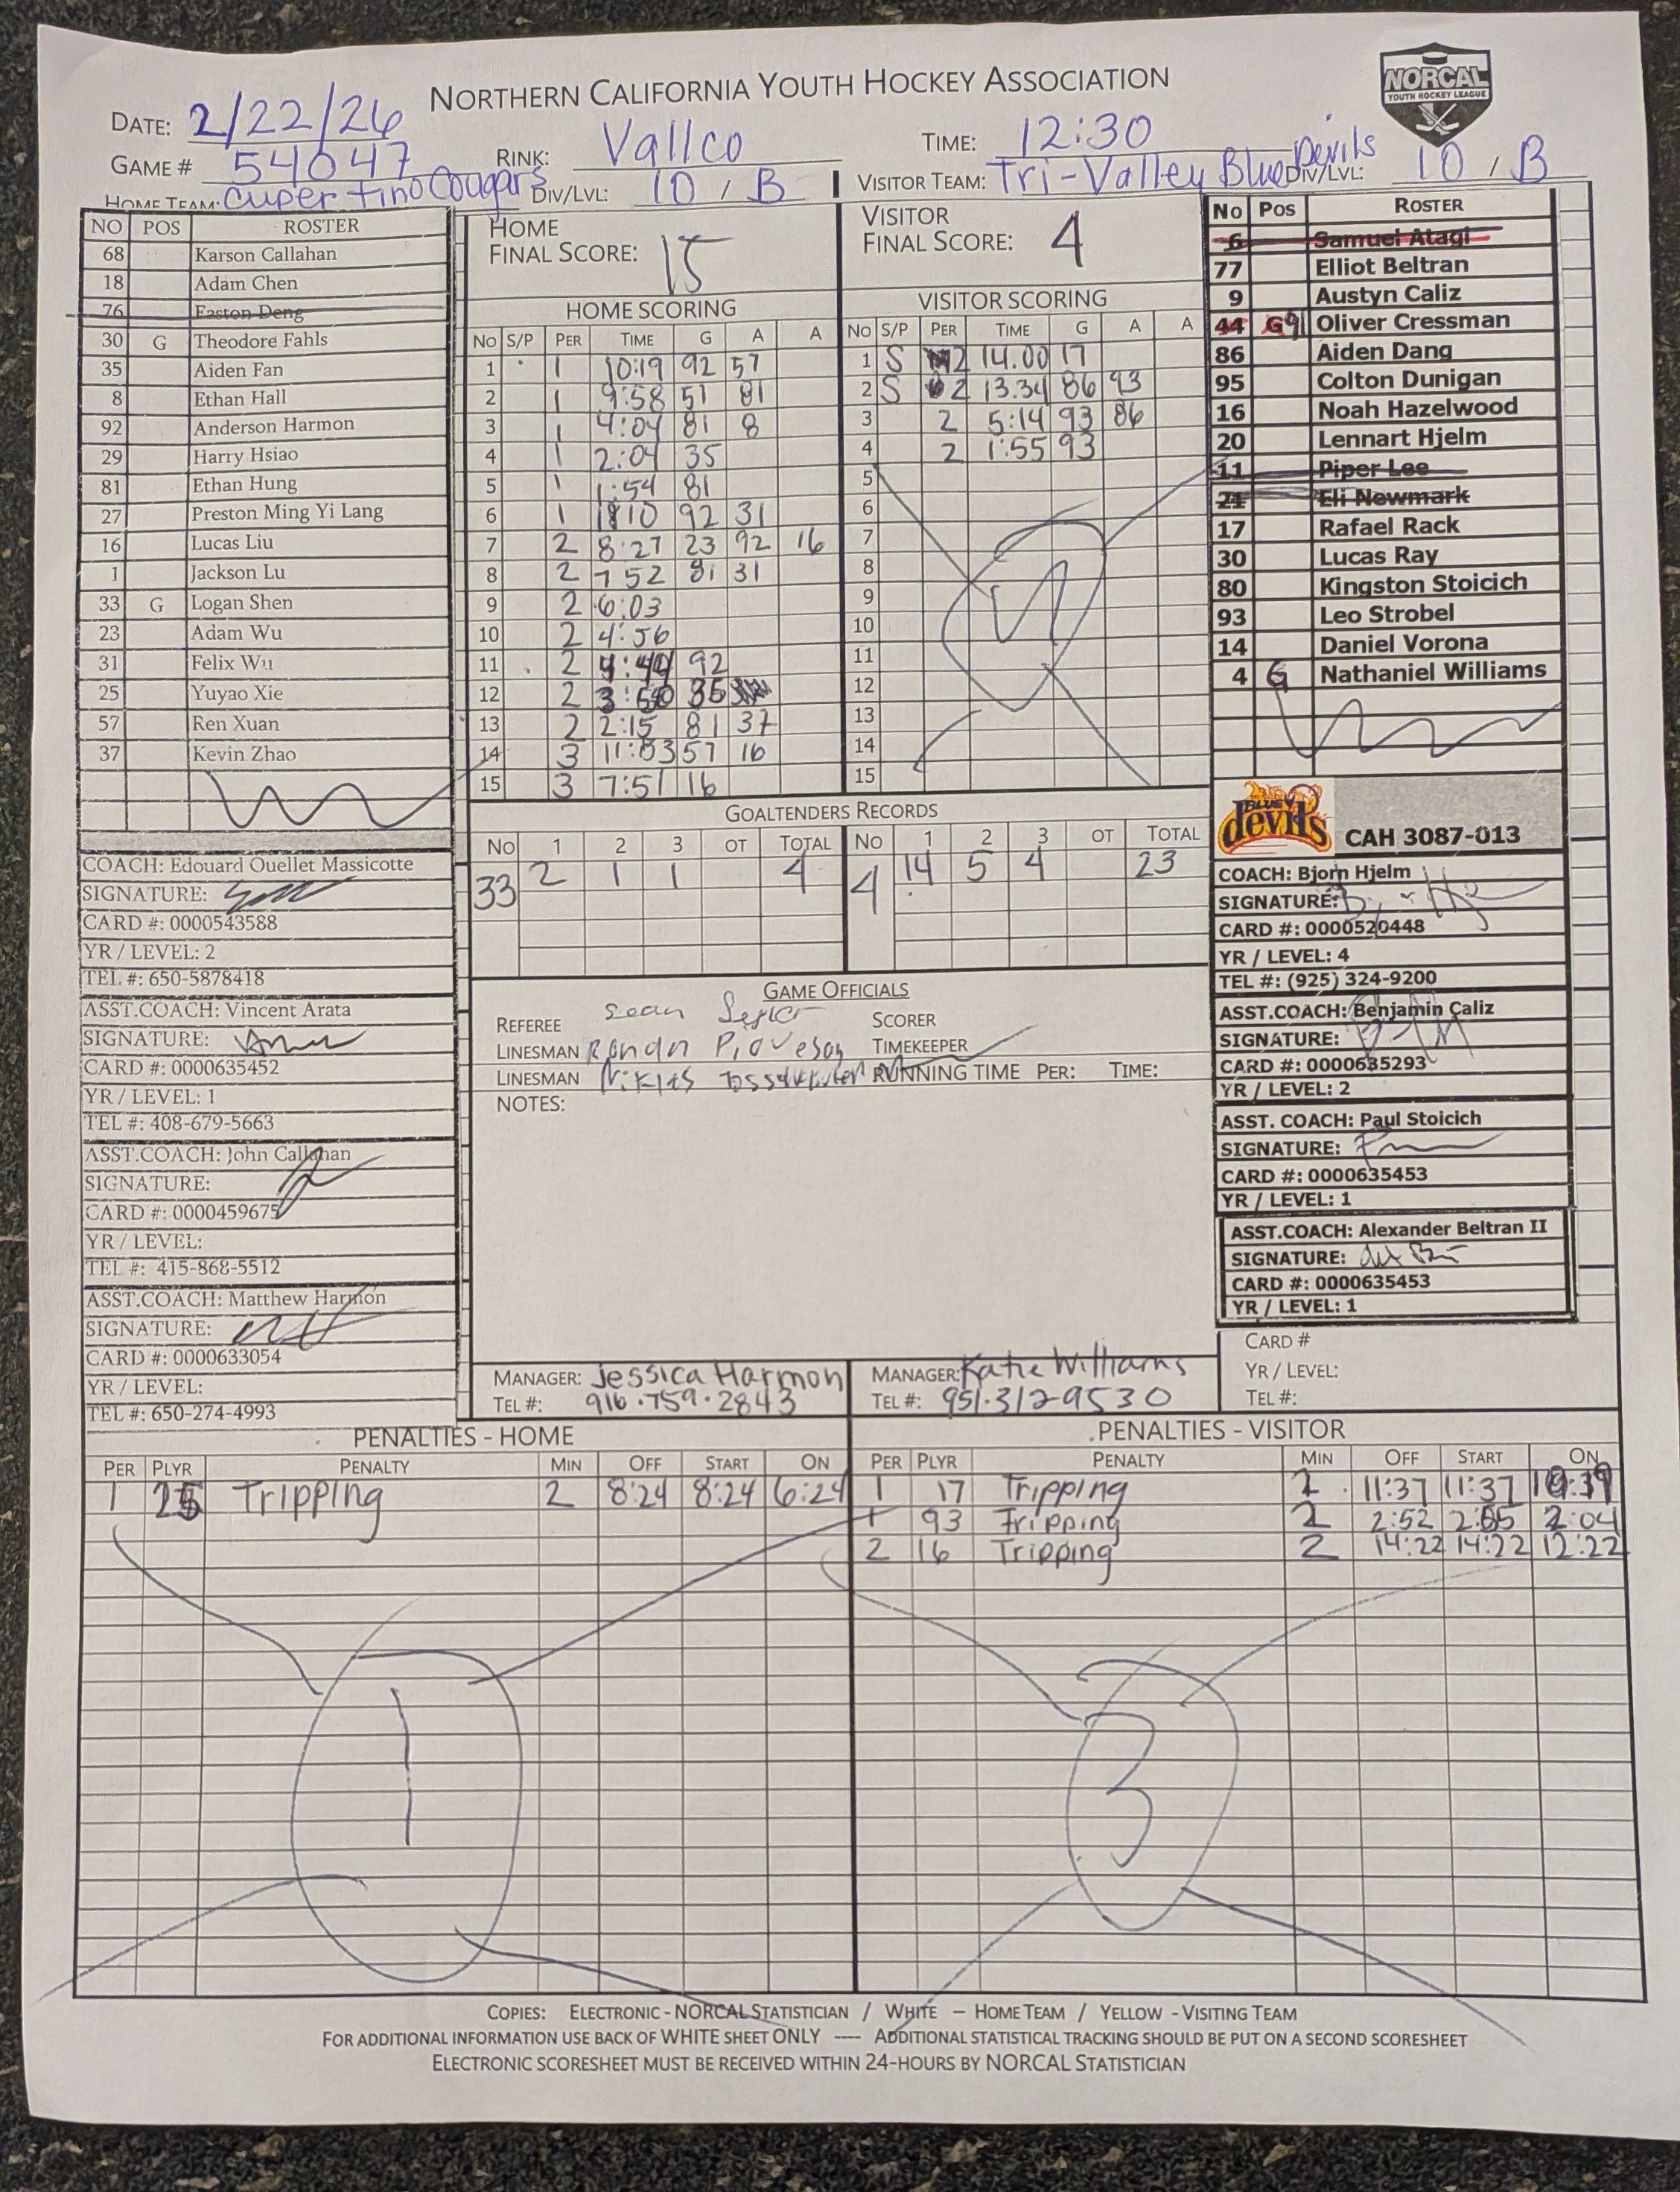 NORTHERN CALIFORNIA YOUTH HOCKEY ASSOCIATION
NORCAL
YOUTH HOCKEY LEAGUE
DATE: 2/22/26
GAME # 54047
RINK: Vallco
TIME: 12:30
HOME TEAM: Cupertino Cougars
DIV/LVL: 10 / B
VISITOR TEAM: Tri-Valley Blue Devils
DIV/LVL: 10 / B
NO POS ROSTER
68 Karson Callahan
18 Adam Chen
76 Easton Deng
30 G Theodore Fahls
35 Aiden Fan
8 Ethan Hall
92 Anderson Harmon
29 Harry Hsiao
81 Ethan Hung
27 Preston Ming Yi Lang
16 Lucas Liu
1 Jackson Lu
33 G Logan Shen
23 Adam Wu
31 Felix Wu
25 Yuyao Xie
57 Ren Xuan
37 Kevin Zhao
COACH: Edouard Ouellet Massicotte
SIGNATURE:
CARD #: 0000543588
YR / LEVEL: 2
TEL #: 650-5878418
ASST.COACH: Vincent Arata
SIGNATURE:
CARD #: 0000635452
YR / LEVEL: 1
TEL #: 408-679-5663
ASST.COACH: John Callahan
SIGNATURE:
CARD #: 0000459675
YR / LEVEL:
TEL #: 415-868-5512
ASST.COACH: Matthew Harmon
SIGNATURE:
CARD #: 0000633054
YR / LEVEL:
TEL #: 650-274-4993
HOME
FINAL SCORE: 15
HOME SCORING
NO S/P PER TIME G A A
1 1 10:19 92 57
2 1 9:58 51 81
3 1 4:04 81 8
4 1 2:04 35
5 1 1:54 81
6 1 92 31
7 2 8:27 23 92 16
8 2 7 52 81 31
9 2 6:03
10 2 4:56
11 2 4:44 92
12 2 35
13 2 2:15 81 37
14 3 11:03 57 16
15 3 7:51 16
VISITOR
FINAL SCORE: 4
VISITOR SCORING
NO S/P PER TIME G A A
1 S 2 14.00 17
2 S 2 13.34 86 93
3 2 5:14 93 86
4 2 1:55 93
5
6
7
8
9
10
11
12
13
14
15
4
GOALTENDERS RECORDS
NO 1 2 3 OT TOTAL NO 1 2 3 OT TOTAL
33 2 1 1 4 4 14 5 4 23
GAME OFFICIALS
REFEREE Sean
SCORER
LINESMAN Ronan
TIMEKEEPER
LINESMAN Niklas
RUNNING TIME PER: TIME:
NOTES:
MANAGER: Jessica Harmon
TEL #: 916.759.2843
MANAGER: Katie Williams
TEL #: 951-312-9530
NO POS ROSTER
6 Samuel Atagi
77 Elliot Beltran
9 Austyn Caliz
44 G 91 Oliver Cressman
86 Aiden Dang
95 Colton Dunigan
16 Noah Hazelwood
20 Lennart Hjelm
11 Piper Lee
21 Eli Newmark
17 Rafael Rack
30 Lucas Ray
80 Kingston Stoicich
93 Leo Strobel
14 Daniel Vorona
4 G Nathaniel Williams
BLUE
devils
CAH 3087-013
COACH: Bjorn Hjelm
SIGNATURE:
CARD #: 0000520448
YR / LEVEL: 4
TEL #: (925) 324-9200
ASST.COACH: Benjamin Caliz
SIGNATURE:
CARD #: 0000635293
YR / LEVEL: 2
ASST. COACH: Paul Stoicich
SIGNATURE:
CARD #: 0000635453
YR / LEVEL: 1
ASST.COACH: Alexander Beltran II
SIGNATURE:
CARD #: 0000635453
YR / LEVEL: 1
CARD #
YR / LEVEL:
TEL #:
PENALTIES - HOME
PER PLYR PENALTY MIN OFF START ON
1 25 Tripping 2 8:24 8:24 6:24
1
PENALTIES - VISITOR
PER PLYR PENALTY MIN OFF START ON
1 17 Tripping 2 11:37 11:37
1 93 Tripping 2 2:52 2:04
2 16 Tripping 2 14:22 14:22 12:22
3
COPIES: ELECTRONIC - NORCAL STATISTICIAN / WHITE – HOME TEAM / YELLOW - VISITING TEAM
FOR ADDITIONAL INFORMATION USE BACK OF WHITE SHEET ONLY ---- ADDITIONAL STATISTICAL TRACKING SHOULD BE PUT ON A SECOND SCORESHEET
ELECTRONIC SCORESHEET MUST BE RECEIVED WITHIN 24-HOURS BY NORCAL STATISTICIAN